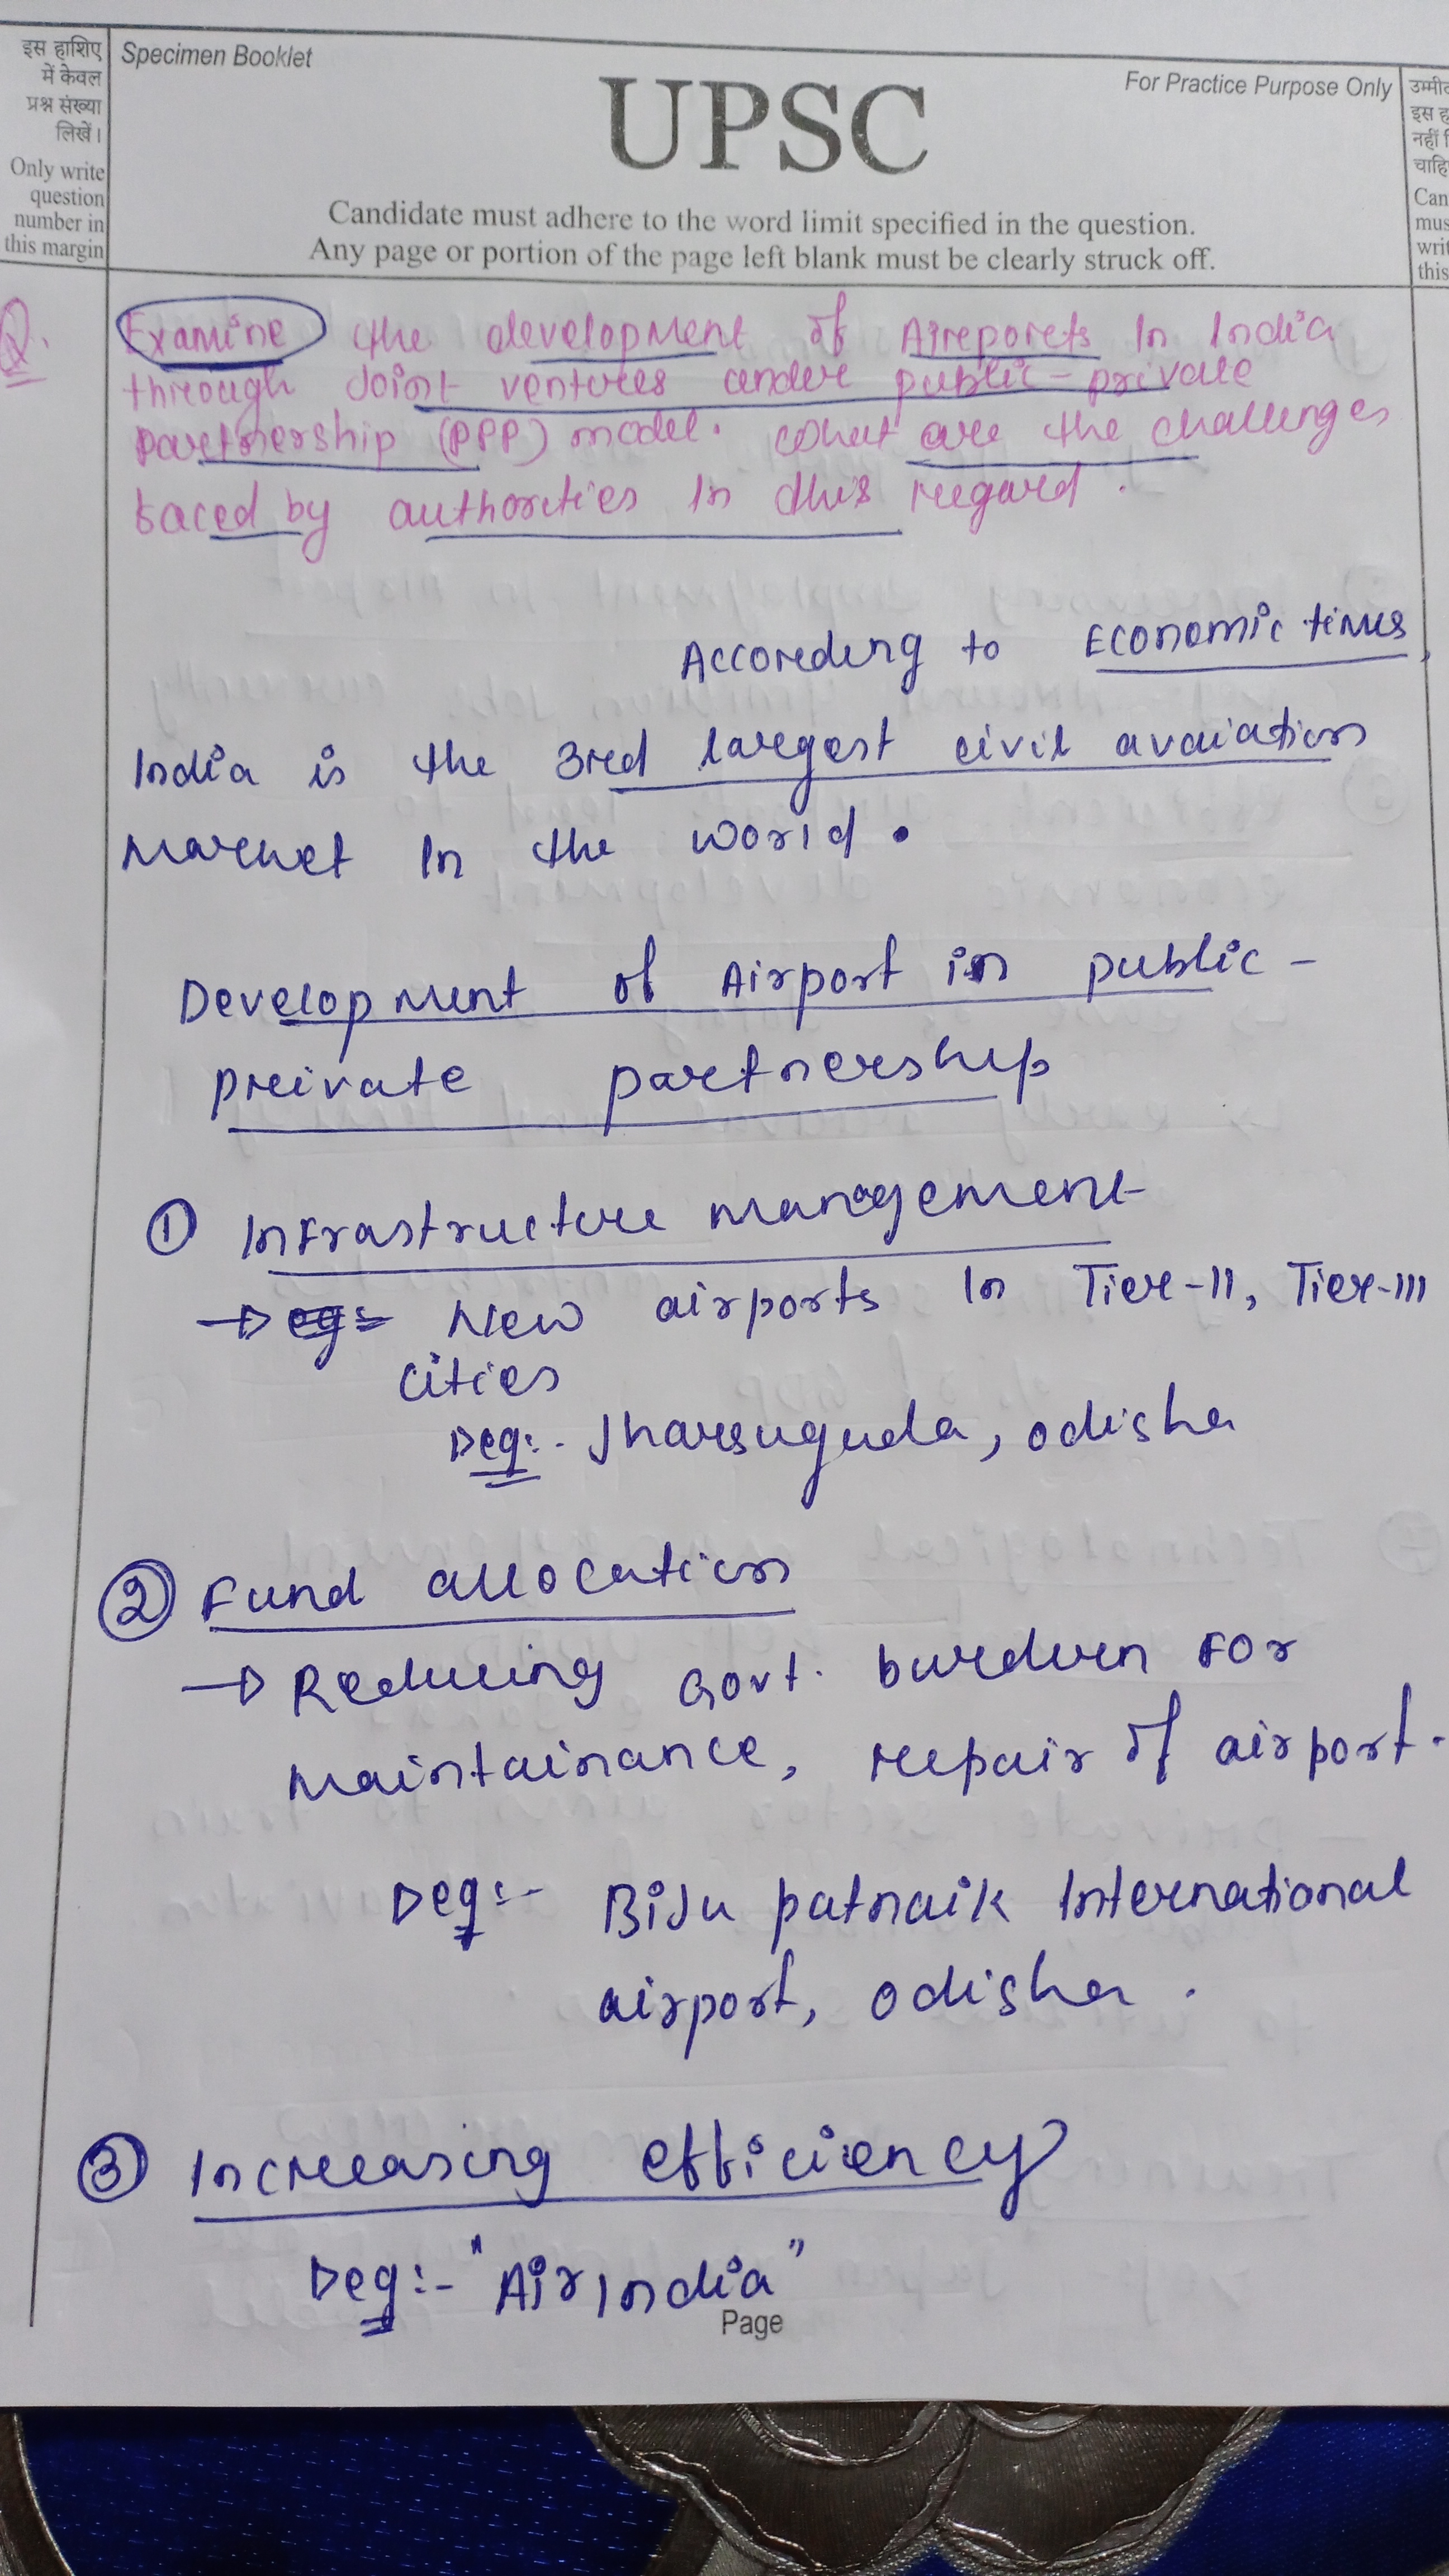 इस हाशिए
में केवल
प्रश्न संख्या
लिखें।
Only write
question
number in
this margin
Specimen Booklet
For Practice Purpose Only
UPSC
Candidate must adhere to the word limit specified in the question.
Any page or portion of the page left blank must be clearly struck off.
उम्मीद
इस ह
नहीं
चाहि
Can
mus
writ
this
Q.
Examine the development of Aireports In India
through Joint ventures under public-private
partnership (PPP) model. What are the challenges
faced by authorities In this regard.
According to Economic times,
India is the 3rd largest civil avaiation
Market In the world.
Development of Airport in public-
private partnership
① Infrastructure management
→ New airports In Tier-II, Tier-III
cities
eg:- Jharsuguda, odisha
② Fund allocation
→ Reducing Govt. burden For
Maintainance, repair of airport.
eg:- Biju patnaik International
airport, odisha.
③ Increasing efficiency
eg:- "Air India"
Page